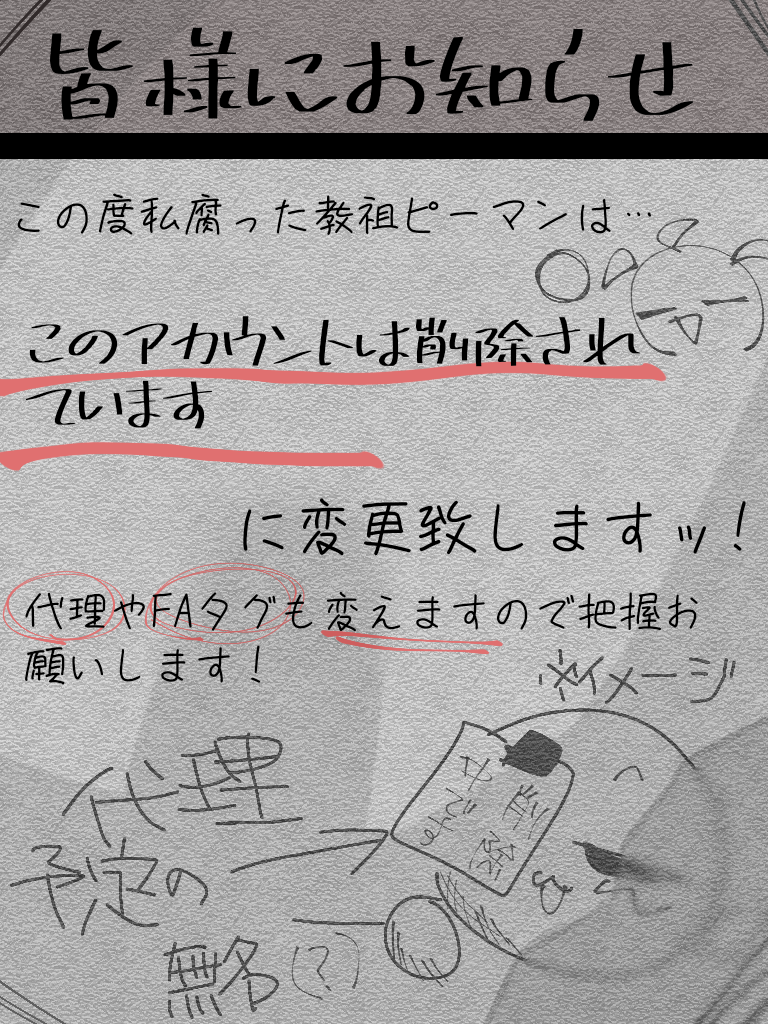 皆様にお知らせ
この度私腐った教祖ピーマンは…
このアカウントは削除され
ています
に変更致しますッ!
代理やFAタグも変えますので把握お
願いします!
※イメージ
代理
予定の
無名(?)
中です